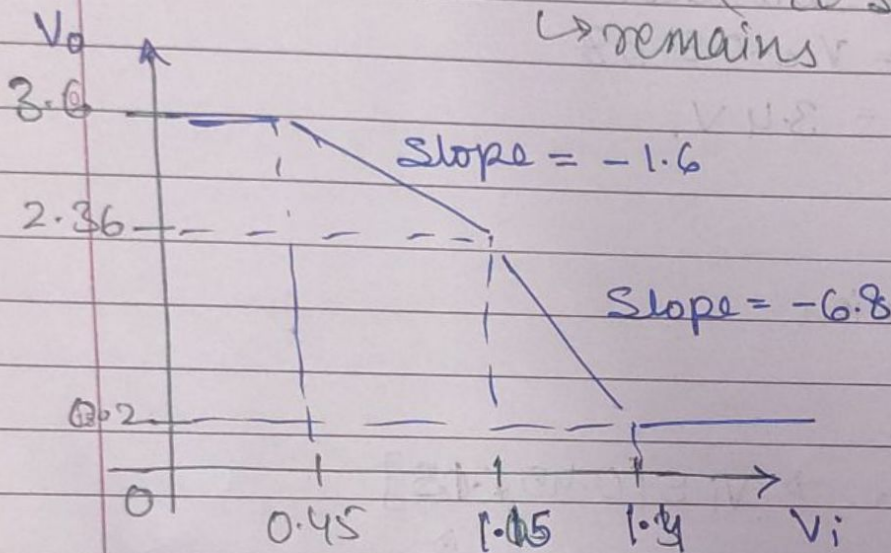 ↳ remains
Vo
3.6
Slope = -1.6
2.36
Slope = -6.8
0.2
0
0.45
Vi